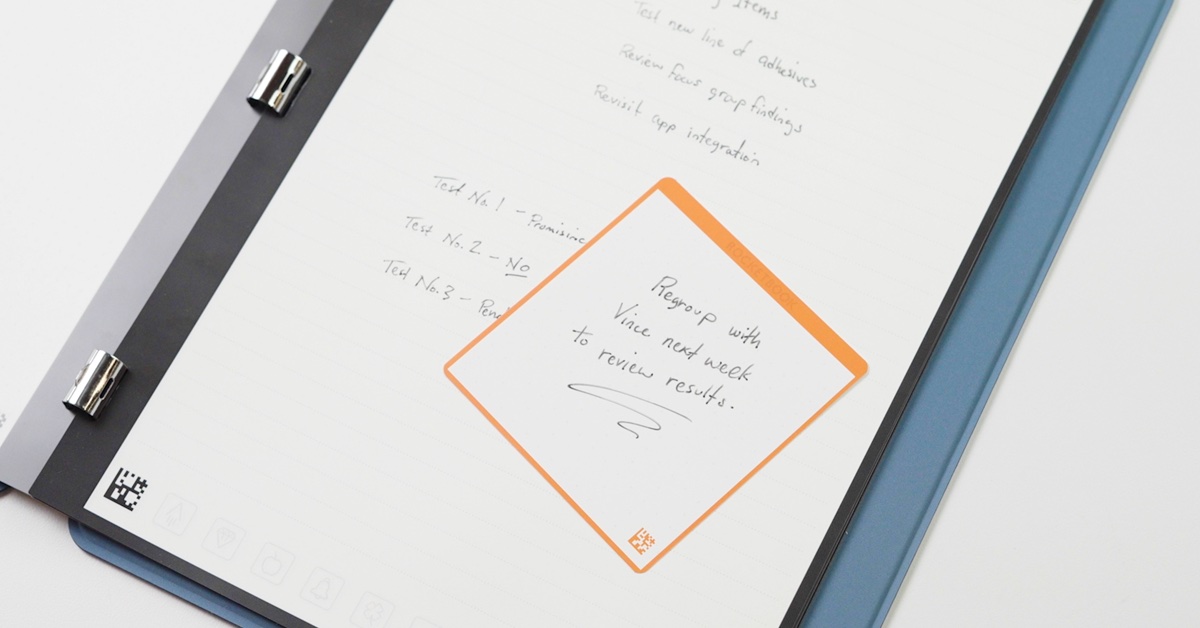 Items
Test new line of adhesives
Review focus group findings
Revisit app integration
Test No. 1 - Promising
Test No. 2 - No
Test No. 3 -
ROCKETBOOK
Regroup with
Vince next week
to review results.